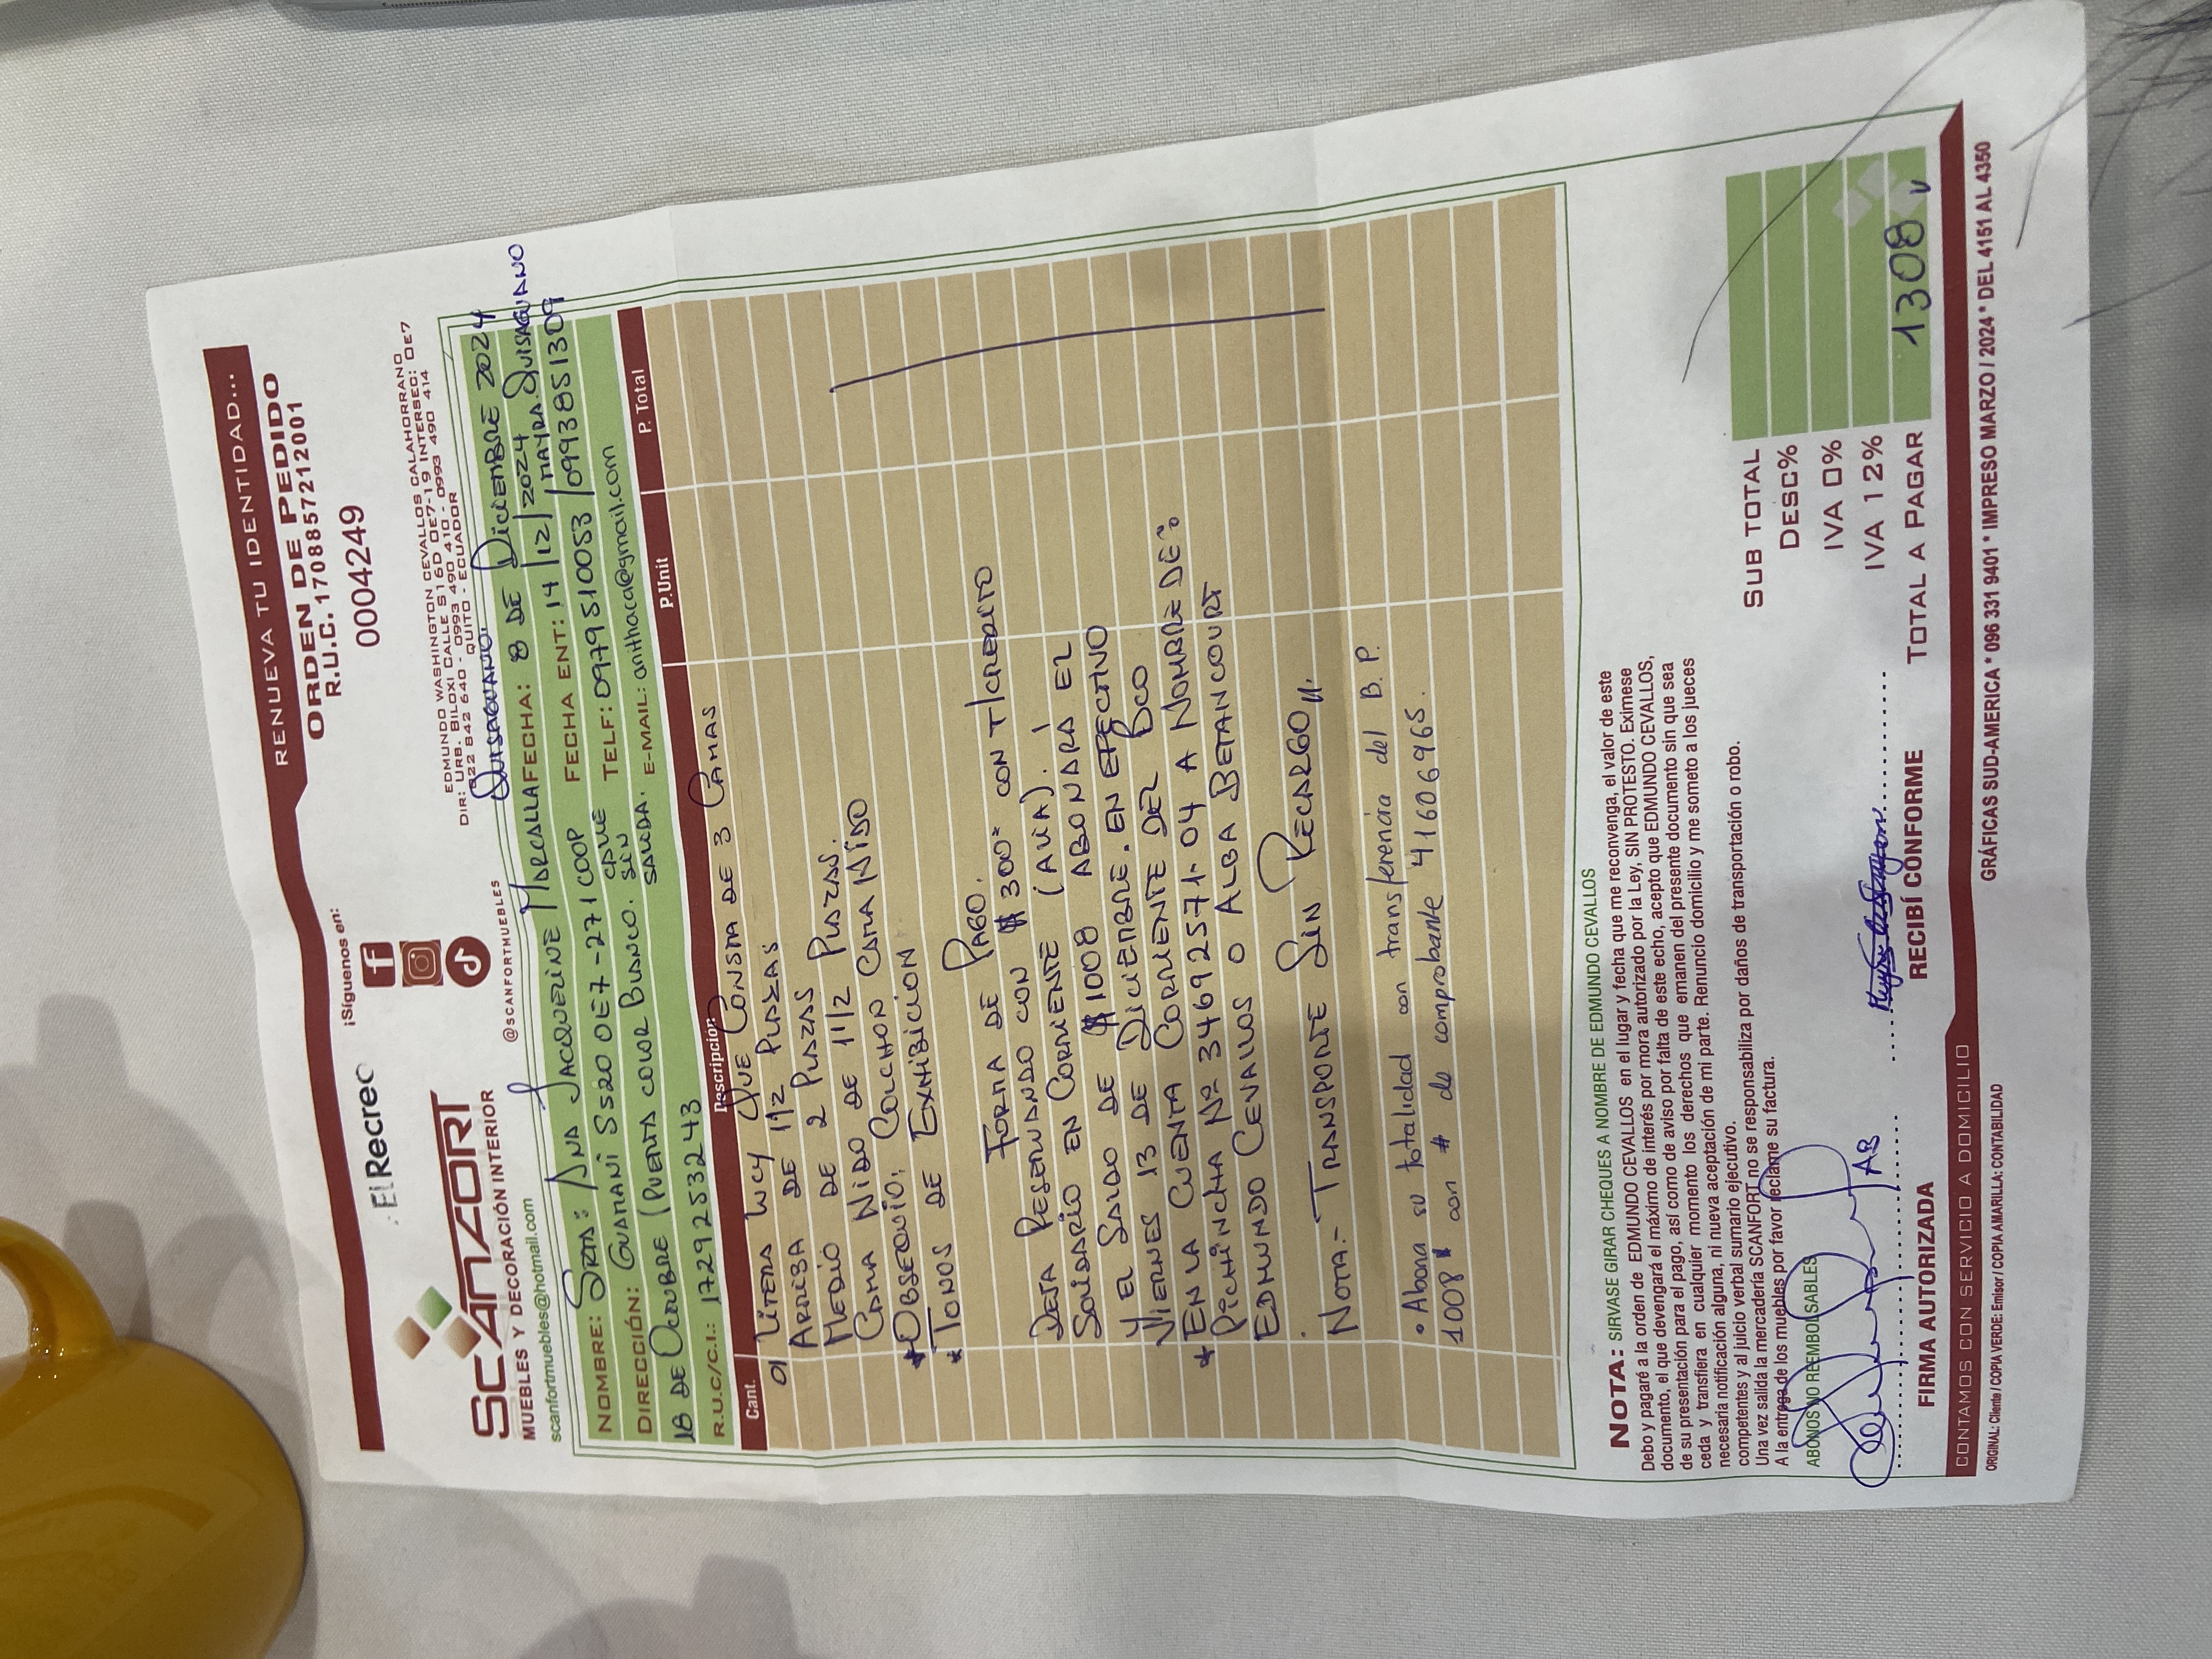 RENUEVA TU IDENTIDAD...
ElRecreo
¡Síguenos en:
ORDEN DE PEDIDO
R.U.C. 1708857212001
0004249
SCANFORT
MUEBLES Y DECORACIÓN INTERIOR
scanfortmuebles@hotmail.com
@SCANFORTMUEBLES
EDMUNDO WASHINGTON CEVALLOS CALAHORRANO
DIR: URB. BILOXI CALLE S16D OE7-19 INTERSEC: OE7
022 842 640 - 0993 490 410 - 0993 490 414
QUITO - ECUADOR
QUISAGUANO.
NOMBRE: SRTA: ANA JACQUELINE MORCALLA FECHA: 8 DE DICIEMBRE 2024
DIRECCIÓN: GUAMANI S520 OE7-271 COOP FECHA ENT: 14/12/2024 MAYRA QUISAGUANO
18 DE OCTUBRE (PUERTA COLOR BLANCO. CALLE SIN SALIDA. TELF: 0979510053 / 0993851309
R.U.C/C.I.: 1729253243 E-MAIL: anithaca@gmail.com
Cant. Descripción P.Unit P. Total
01 LITERA LUCY QUE CONSTA DE 3 CAMAS
ARRIBA DE 1 1/2 PLAZAS
MEDIO DE 2 PLAZAS
CAMA NIDO DE 1 1/2 PLAZAS.
* OBSEQUIO: COLCHON CAMA NIDO
* TONOS DE EXHIBICION
FORMA DE PAGO.
DEJA RESERVANDO CON $ 300= CON T/CREDITO
SOLIDARIO EN CORRIENTE (ALIA).
Y EL SALDO DE $ 1008 ABONARÁ EL
VIERNES 13 DE DICIEMBRE. EN EFECTIVO
* EN LA CUENTA CORRIENTE DEL BCO
PICHINCHA Nº 34692571-04 A NOMBRE DE:
EDMUNDO CEVALLOS O ALBA BETANCOURT
NOTA.- TRANSPORTE SIN RECARGO //.
• Abona su totalidad con transferencia del B.P.
1008 con # de comprobante 41606965.
NOTA: SIRVASE GIRAR CHEQUES A NOMBRE DE EDMUNDO CEVALLOS
Debo y pagaré a la orden de EDMUNDO CEVALLOS en el lugar y fecha que me reconvenga, el valor de este
documento, el que devengará el máximo de interés por mora autorizado por la Ley, SIN PROTESTO. Exímese
de su presentación para el pago, así como de aviso por falta de este echo, acepto que EDMUNDO CEVALLOS,
ceda y transfiera en cualquier momento los derechos que emanen del presente documento sin que sea
necesaria notificación alguna, ni nueva aceptación de mi parte. Renuncio domicilio y me someto a los jueces
competentes y al juicio verbal sumario ejecutivo.
Una vez salida la mercadería SCANFORT no se responsabiliza por daños de transportación o robo.
A la entrega de los muebles por favor reclame su factura.
ABONOS NO REEMBOLSABLES
SUB TOTAL
DESC%
IVA 0%
IVA 12%
TOTAL A PAGAR 1308
AB
FIRMA AUTORIZADA
RECIBÍ CONFORME
CONTAMOS CON SERVICIO A DOMICILIO
ORIGINAL: Cliente / COPIA VERDE: Emisor / COPIA AMARILLA: CONTABILIDAD
GRÁFICAS SUD-AMERICA * 096 331 9401 * IMPRESO MARZO / 2024 * DEL 4151 AL 4350